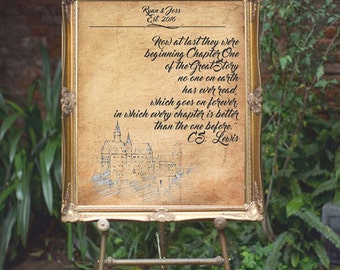 Ryan & Jess
Est. 2016
Now at last they were
beginning Chapter One
of the Great Story
no one on earth
has ever read,
which goes on forever,
in which every chapter is better
than the one before.
C.S. Lewis